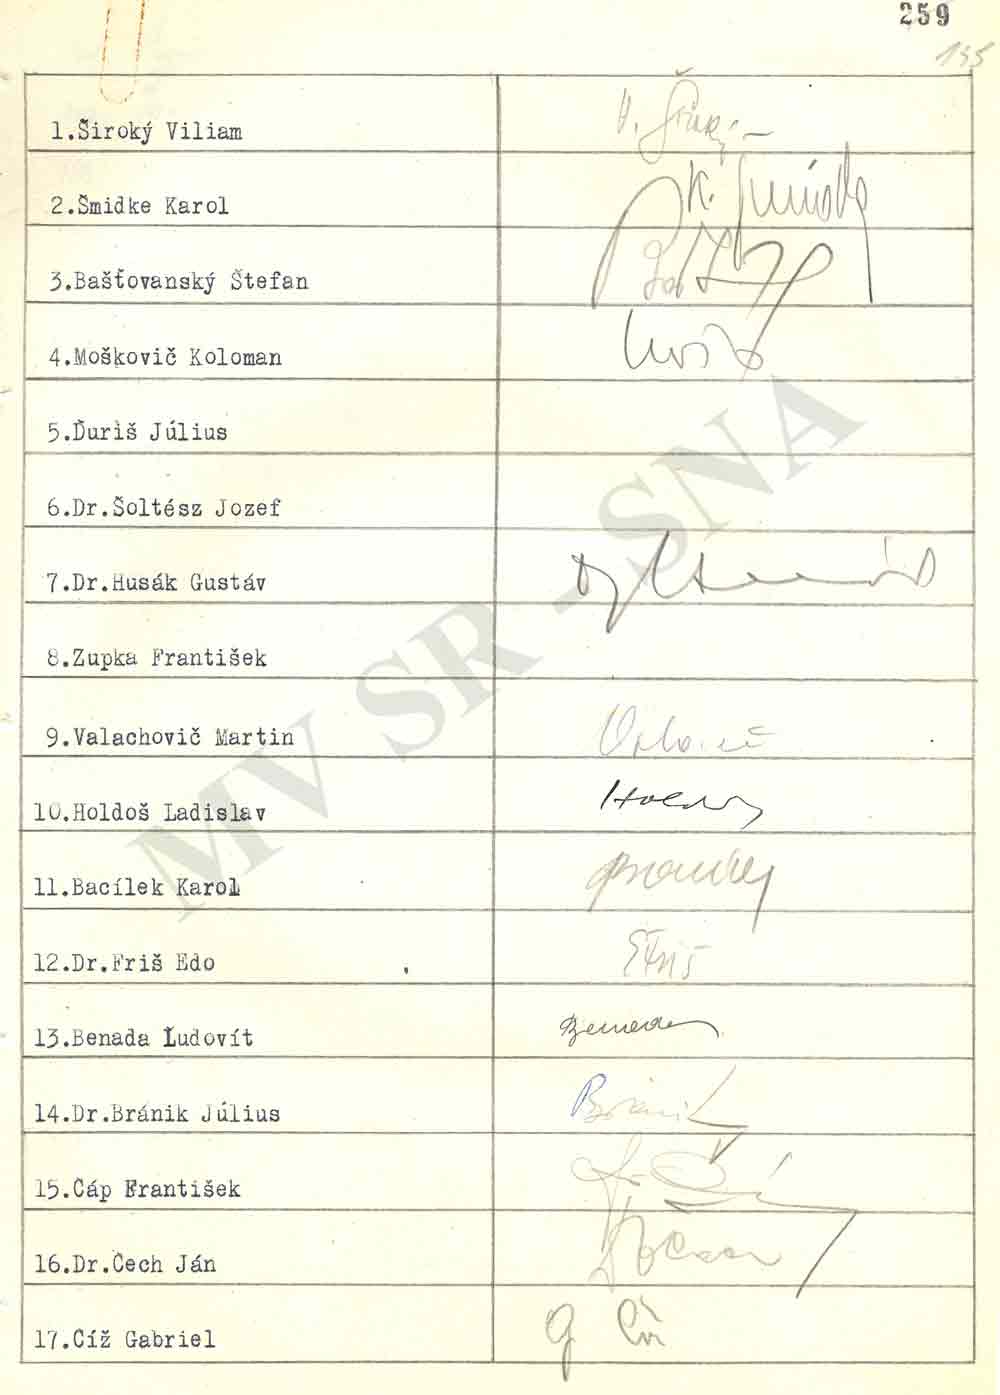 259
195
1.Široký Viliam V. Širok
2.Šmidke Karol K. Šmidke
3.Bašťovanský Štefan
4.Moškovič Koloman
5.Ďuriš Július
6.Dr.Šoltész Jozef
7.Dr.Husák Gustáv
8.Zupka František
9.Valachovič Martin
10.Holdoš Ladislav
11.Bacílek Karol
12.Dr.Friš Edo EFriš
13.Benada Ľudovít Benada
14.Dr.Bránik Július Bránik
15.Cáp František
16.Dr.Čech Ján
17.Cíž Gabriel
MV SR - SNA